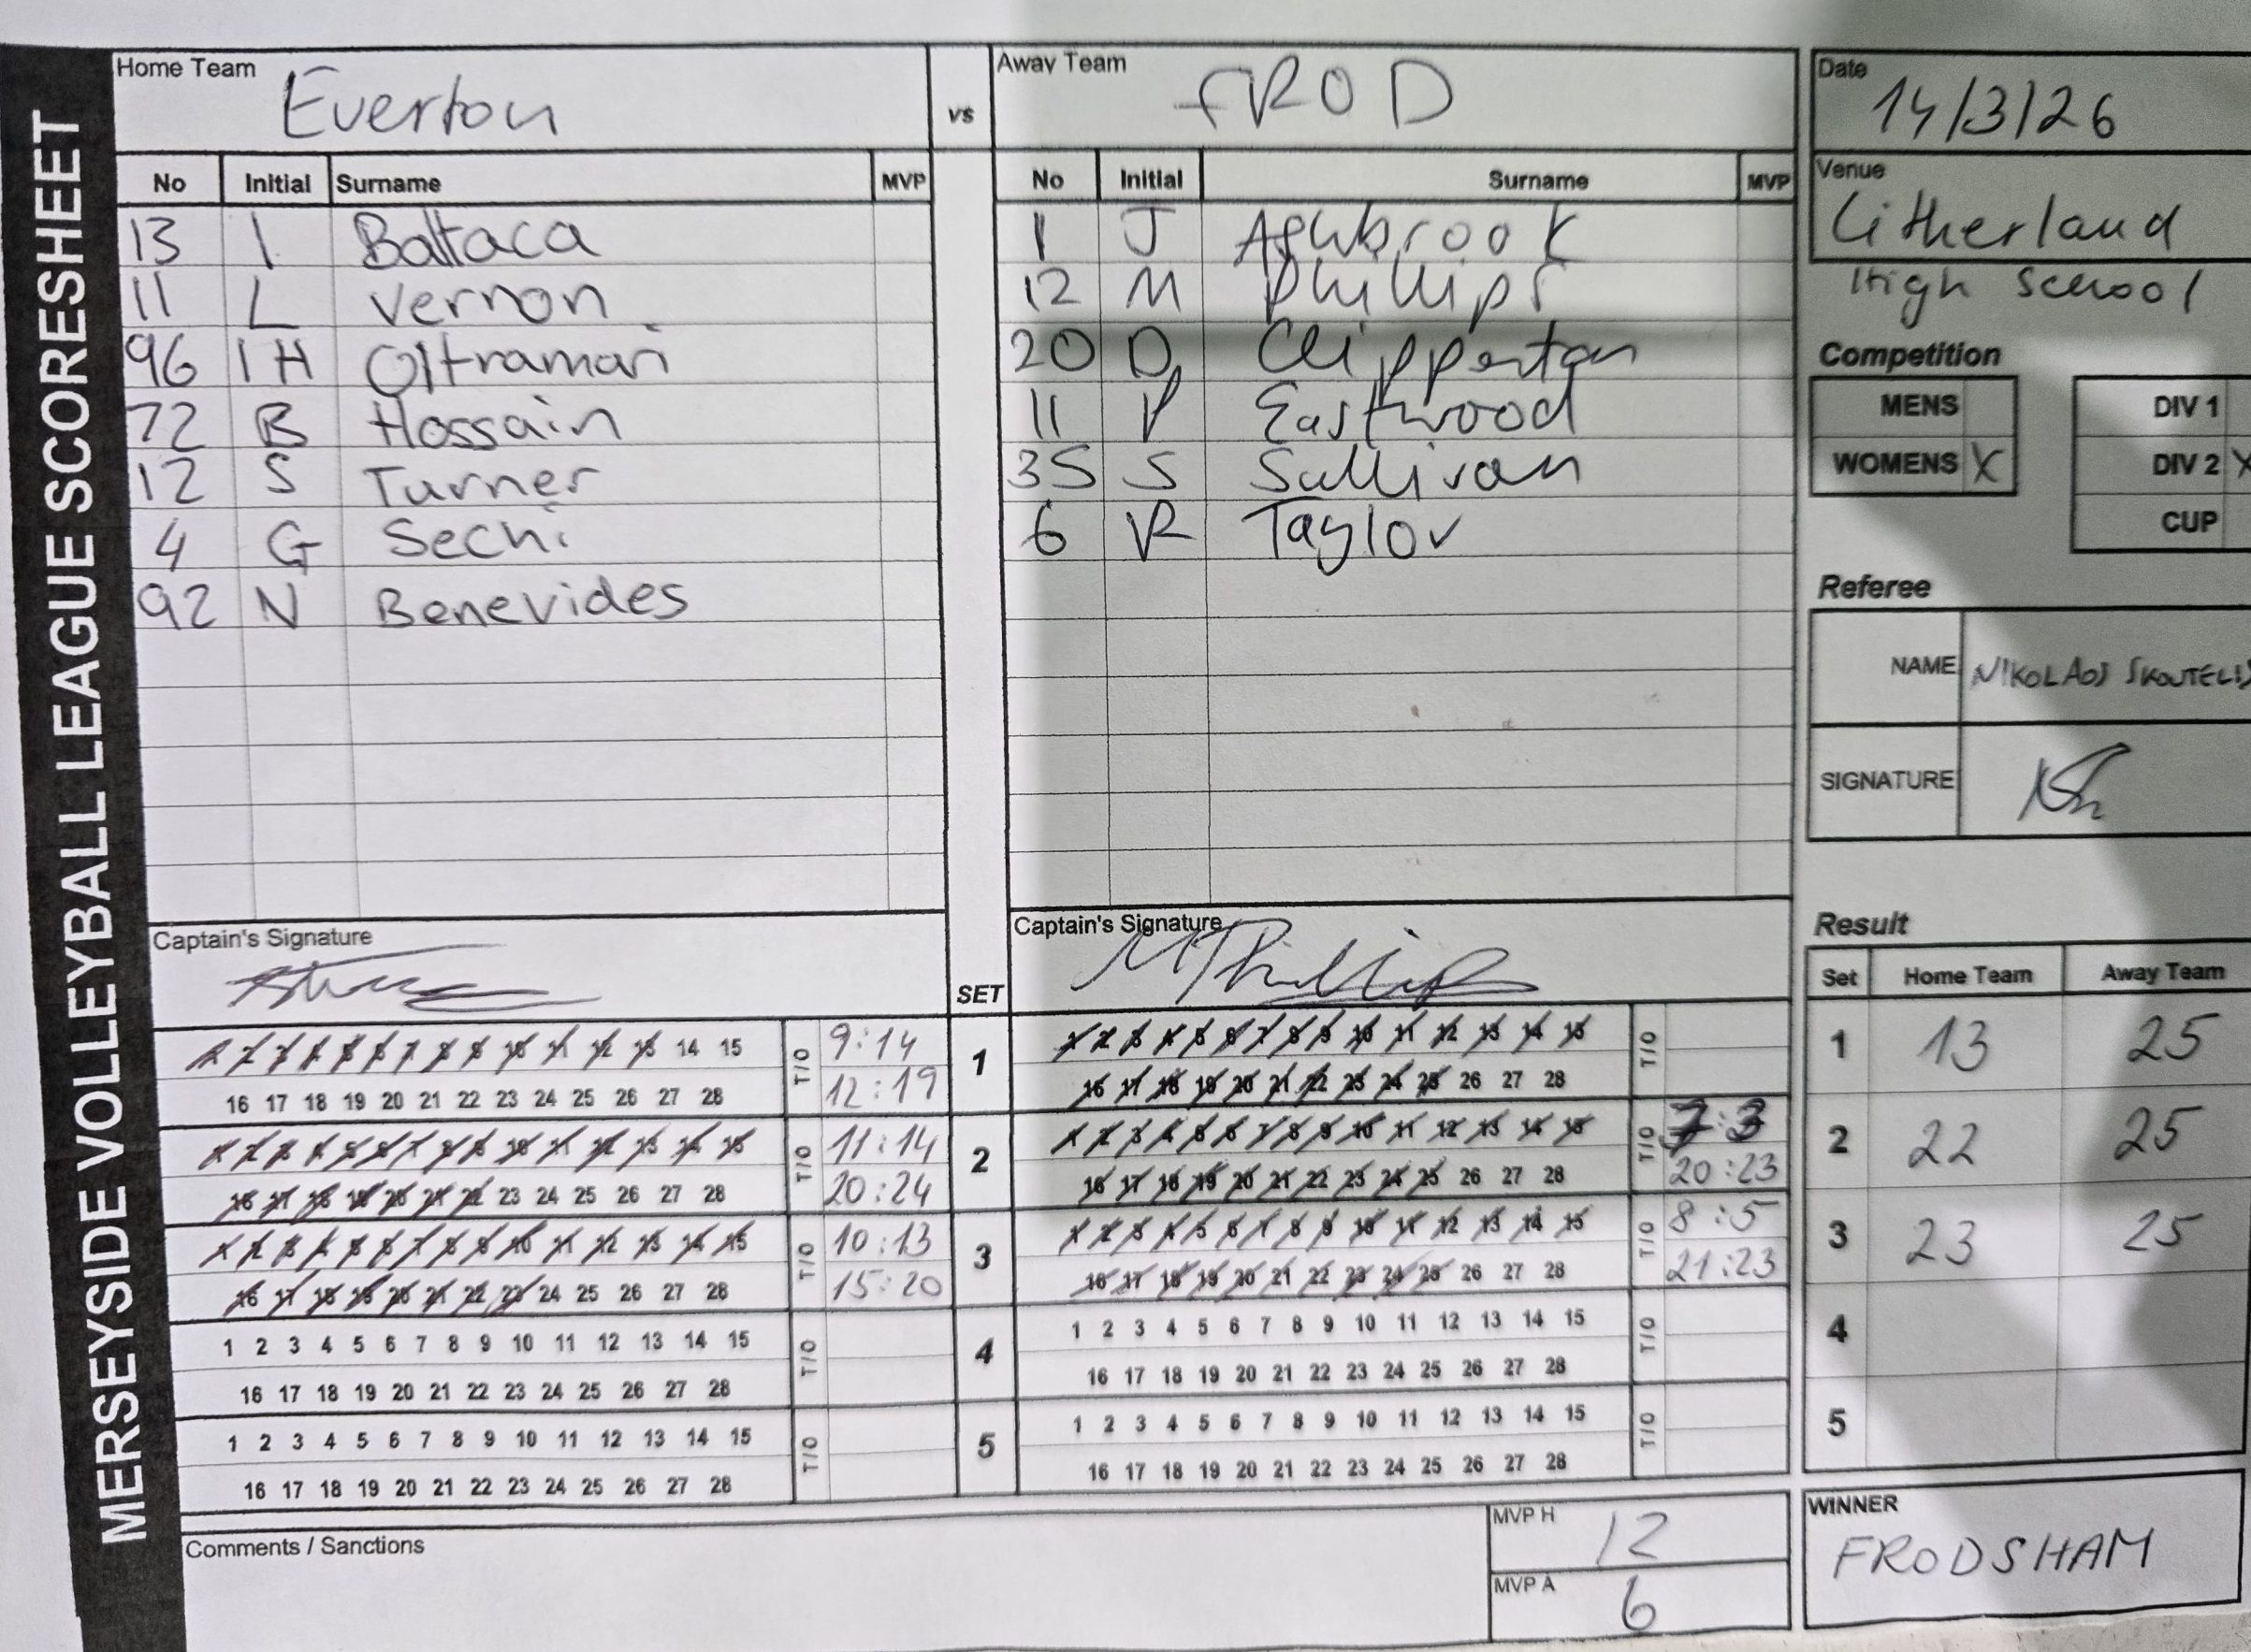 MERSEYSIDE VOLLEYBALL LEAGUE SCORESHEET
Home Team Everton
vs
Away Team FROD
No Initial Surname MVP
13 I Baltaca
11 L Vernon
96 I H Oltramari
72 B Hossain
12 S Turner
4 G Sechi
92 N Benevides
No Initial Surname MVP
1 J Ashbrook
12 M Phillips
20 D Clipperton
11 P Eastwood
35 S Sullivan
6 R Taylor
Date
14/3/26
Venue
Litherland
High School
Competition
MENS
WOMENS X
DIV 1
DIV 2 X
CUP
Referee
NAME NIKOLAOS SKOUTELIS
SIGNATURE
Captain's Signature
SET
Captain's Signature
MPhillips
1 2 3 4 5 6 7 8 9 10 11 12 13 14 15 T/O 9:14
16 17 18 19 20 21 22 23 24 25 26 27 28 12:19
1
1 2 3 4 5 6 7 8 9 10 11 12 13 14 15 T/O
16 17 18 19 20 21 22 23 24 25 26 27 28
1 2 3 4 5 6 7 8 9 10 11 12 13 14 15 T/O 11:14
16 17 18 19 20 21 22 23 24 25 26 27 28 20:24
2
1 2 3 4 5 6 7 8 9 10 11 12 13 14 15 T/O 7:3
16 17 18 19 20 21 22 23 24 25 26 27 28 20:23
1 2 3 4 5 6 7 8 9 10 11 12 13 14 15 T/O 10:13
16 17 18 19 20 21 22 23 24 25 26 27 28 15:20
3
1 2 3 4 5 6 7 8 9 10 11 12 13 14 15 T/O 8:5
16 17 18 19 20 21 22 23 24 25 26 27 28 21:23
1 2 3 4 5 6 7 8 9 10 11 12 13 14 15 T/O
16 17 18 19 20 21 22 23 24 25 26 27 28
4
1 2 3 4 5 6 7 8 9 10 11 12 13 14 15 T/O
16 17 18 19 20 21 22 23 24 25 26 27 28
1 2 3 4 5 6 7 8 9 10 11 12 13 14 15 T/O
16 17 18 19 20 21 22 23 24 25 26 27 28
5
1 2 3 4 5 6 7 8 9 10 11 12 13 14 15 T/O
16 17 18 19 20 21 22 23 24 25 26 27 28
Result
Set Home Team Away Team
1 13 25
2 22 25
3 23 25
4
5
Comments / Sanctions
MVP H 12
MVP A 6
WINNER
FRODSHAM